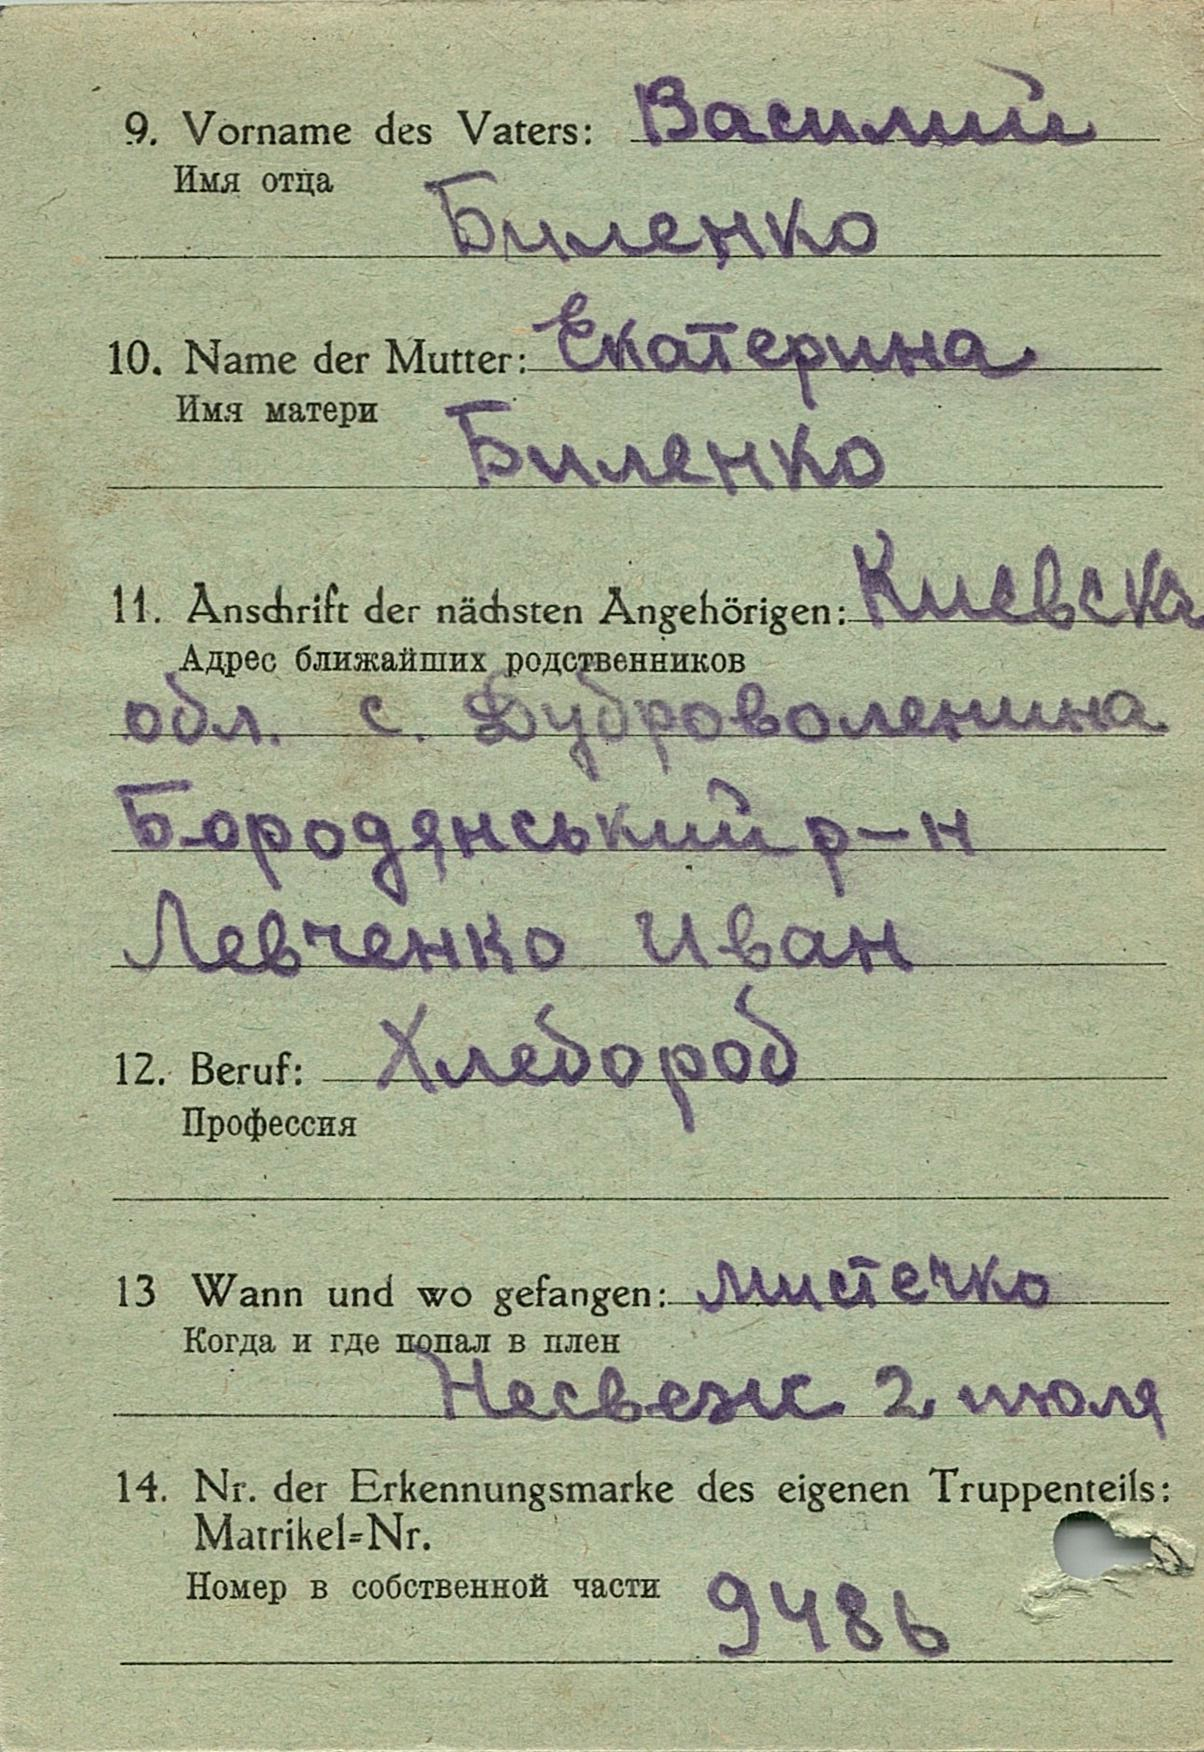 9. Vorname des Vaters: Василий
Имя отца
Биленко
10. Name der Mutter: Екатерина
Имя матери
Биленко
11. Anschrift der nächsten Angehörigen: Киевска
Адрес ближайших родственников
обл. с. Дуброволенина
Бородянський р-н
Левченко Иван
12. Beruf: Хлебороб
Профессия
13 Wann und wo gefangen: мистечко
Когда и где попал в плен
Несвеж 2 июля
14. Nr. der Erkennungsmarke des eigenen Truppenteils:
Matrikel=Nr.
Номер в собственной части 9486